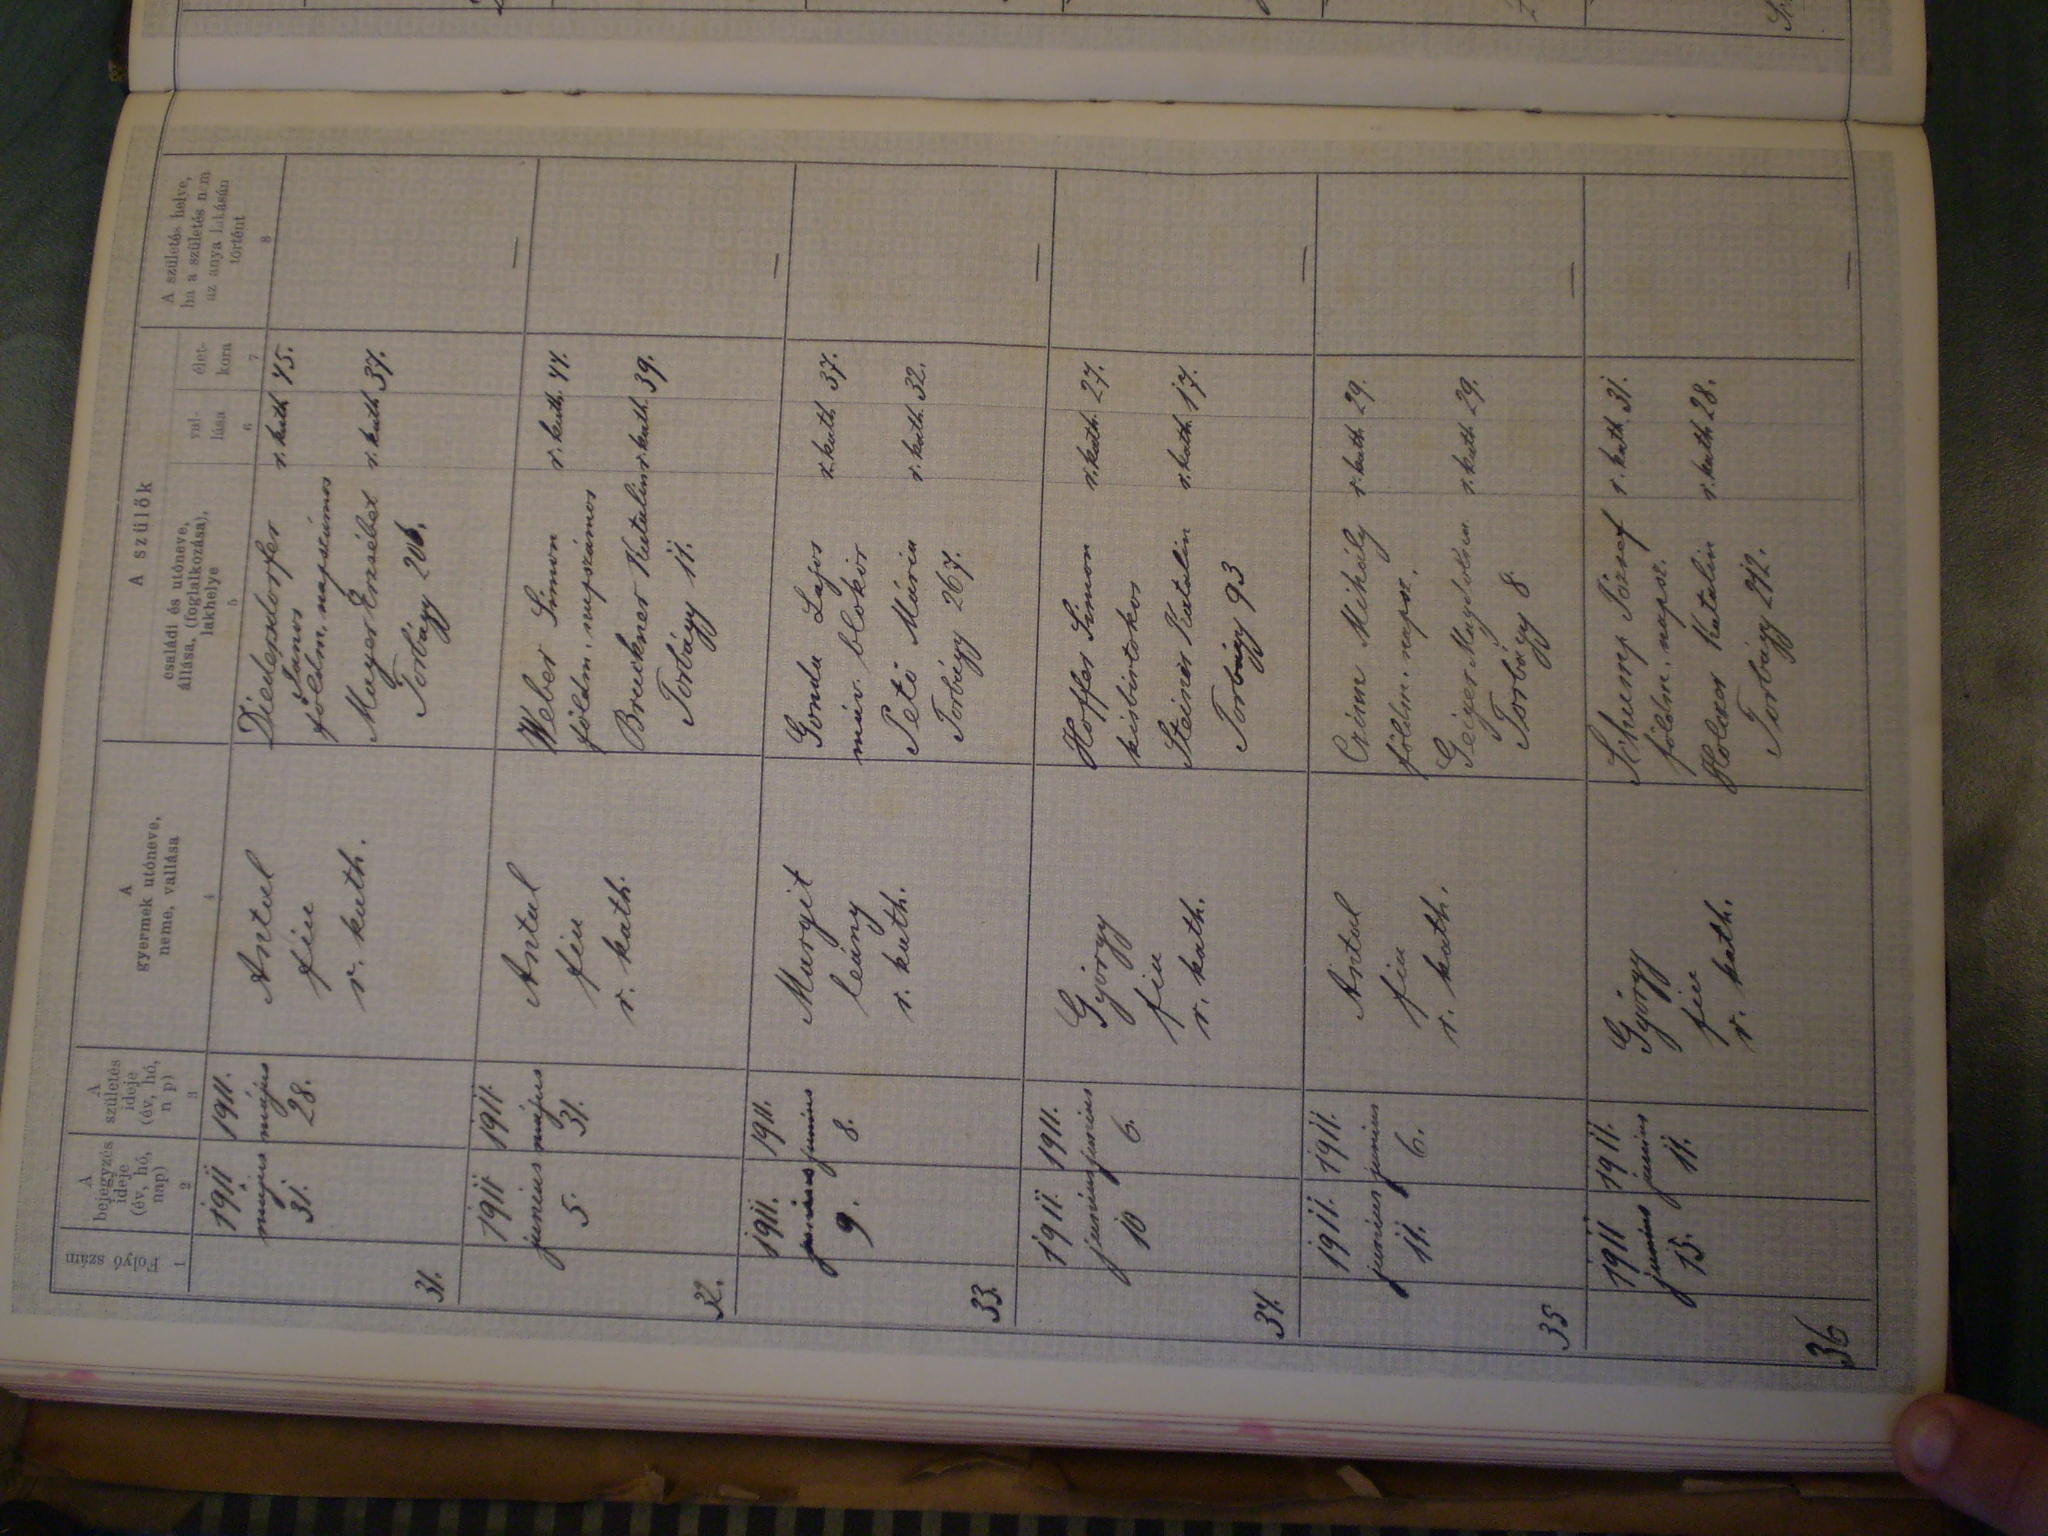 A szülők
Folyó szám
A
bejegyzés
ideje
(év, hó,
nap)
A
születés
ideje
(év, hó,
n p)
A
gyermek utóneve,
neme, vallása
családi és utóneve,
állása, (foglalkozása),
lakhelye
val-
lása
élet-
kora
A születés helye,
ha a születés nem
az anya lakásán
történt
1
2
3
4
5
6
7
8
31.
1911
május
31.
1911.
május
28.
Antal
fiu
r. kath.
Diedersdorfer
János
földm, napszámos
r. kath 45.
Mayer Erzsébet r. kath 37.
Torbágy 206.
32.
1911
junius
5.
1911.
május
31.
Antal
fiu
r. kath.
Weber Simon r. kath. 44.
földm, napszámos
Bruckner Katalin r. kath. 39.
Torbágy 11.
33.
1911.
junius
9.
1911.
junius
8.
Margit
leány
r. kath.
Gonda Lajos r. kath. 37.
máv. blokőr
Pető Mária r. kath. 32.
Torbágy 267.
34.
1911.
junius
10
1911.
junius
6.
György
fiu
r. kath.
Hoffer Simon r. kath. 27.
kisbirtokos
Steiner Katalin r. kath. 17.
Torbágy 93
35
1911.
junius
11.
1911.
junius
6.
Antal
fiu
r. kath.
Mihály r. kath. 29.
földm. napsz.
Geiger Magdolna r. kath. 29.
Torbágy 8.
36
1911
junius
15.
1911.
junius
11.
György
fiu
r. kath.
Schrump József r. kath. 31.
földm. napsz.
Katalin r. kath 28.
Torbágy 272.